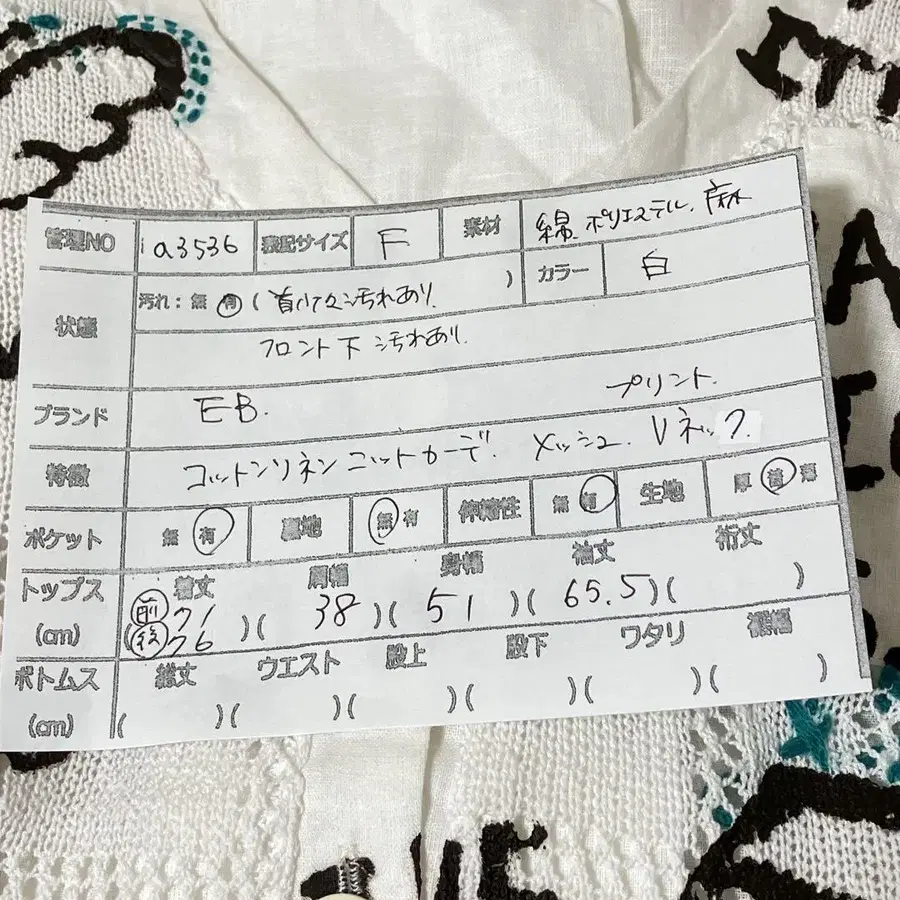 管理NO ia3536 表記サイズ F 素材 綿 ポリエステル、麻
状態 汚れ： 無 有 ( 首タグ汚れあり. ) カラー 白
フロント下 汚れあり.
ブランド EB.
プリント.
特徴 コットンリネンニットカーデ. メッシュ. Vネック.
ポケット 無 有 裏地 無 有 伸縮性 無 有 生地 厚 普 薄
トップス 着丈 肩幅 身幅 袖丈 裄丈
(cm) ( 前 71 後 76 )( 38 )( 51 )( 65.5 )( )
ボトムス 総丈 ウエスト 股上 股下 ワタリ 裾幅
(cm) ( )( )( )( )( )( )